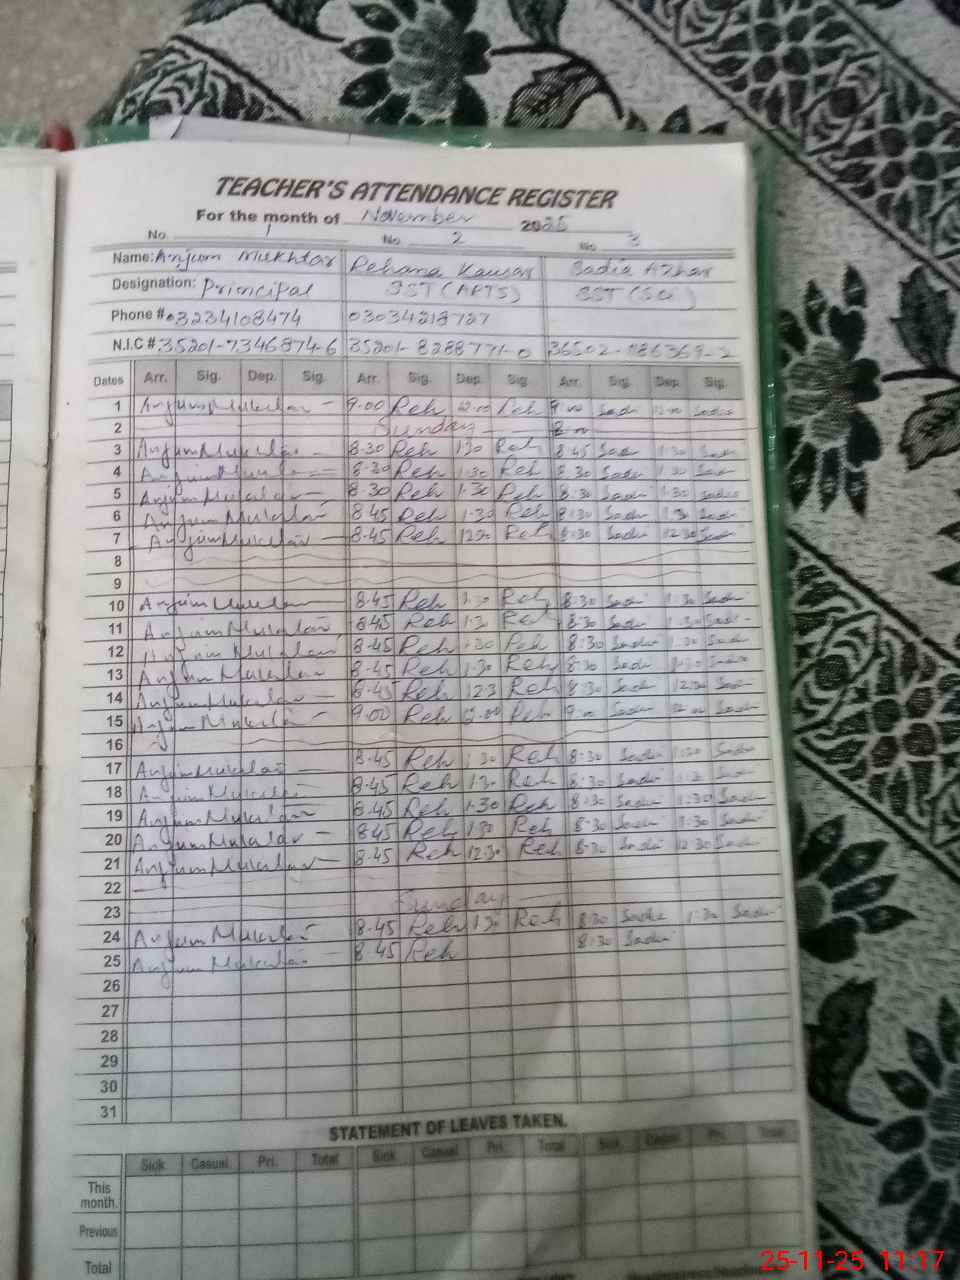 TEACHER'S ATTENDANCE REGISTER
For the month of November 2025
No. 1 No. 2 No 3
Name: Anjum Mukhtar Rehana Kausar Sadia Azhar
Designation: Principal SST (ARTS) SST (Sci)
Phone # 03234108474 03034218727
N.I.C # 35201-7346874-6 35201-8288771-0 36502-
Dates Arr. Sig. Dep. Sig. Arr. Sig. Dep. Sig. Arr. Sig. Dep. Sig.
1 Anjum Mukhtar 9.00 Reh 12.00 Reh 9.00 Sadi 12.00 Sadia
2 Sunday
3 Anjum Mukhtar 8.30 Reh 1.30 Reh 8.45 Sadi 1.30 Sadi
4 Anjum 8.30 Reh 1.30 Reh 8.30 Sadi 1.30 Sadi
5 Anjum Mukhtar 8.30 Reh 1.30 Reh 8.30 Sadi 1.30 Sadia
6 Anjum Mukhtar 8.45 Reh 1.30 Reh 8.30 Sadi 1.30 Sadi
7 Anjum Mukhtar 8.45 Reh Reh 8.30 Sadi 12.30 Sadi
8
9
10 Anjum Mukhtar 8.45 Reh 1.30 Reh 8.30 Sadi 1.30 Sadi
11 Anjum Mukhtar 8.45 Reh 1.30 Reh 8.30 Sadi 1.30 Sadi
12 Anjum Mukhtar 8.45 Reh 1.30 Reh 8:30 Sadi 1.30 Sadi
13 Anjum Mukhtar 8.45 Reh 1.30 Reh 8:30 Sadi Sadia
14 Anjum Mukhtar 8.45 Reh Reh 8.30 Sadi 12.30 Sadi
15 Anjum Mukhtar 9.00 Reh 12.00 Reh 9.00 Sadi 12.00 Sadi
16
17 Anjum Mukhtar 8.45 Reh 1.30 Reh 8:30 Sadi 1:30 Sadi
18 Anjum Mukhtar 8.45 Reh 1.30 Reh 8:30 Sadi 1.30 Sadi
19 Anjum Mukhtar 8.45 Reh 1.30 Reh 8:30 Sadi 1:30 Sadi
20 Anjum Mukhtar 8.45 Reh 1.30 Reh 8:30 Sadi 1:30 Sadi
21 Anjum Mukhtar 8.45 Reh 12.30 Reh 8:30 Sadi 12.30 Sadi
22
23 Sunday
24 Anjum Mukhtar 8.45 Reh 1.30 Reh 8:30 Sadi 1:30 Sadi
25 Anjum Mukhtar 8.45 Reh 8:30 Sadi
26
27
28
29
30
31
STATEMENT OF LEAVES TAKEN.
Sick Casual Pri. Total Sick Casual Pri. Total Sick Casual Pri. Total
This
month.
Previous
Total
25-11-25 11:17